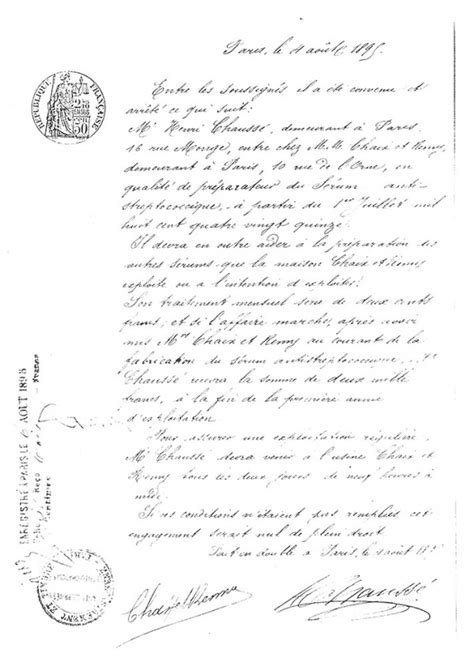 Paris, le 4 août 1895.
RÉPUBLIQUE FRANÇAISE
Entre les soussignés il a été convenu et
arrêté ce qui suit:
Mr Henri Chaussé, demeurant à Paris
16 rue Monge, entre chez M.M. Chaix et Remy,
demeurant à Paris, 10 rue de l'Orne, en
qualité de préparateur du Sérum anti-
streptococcique, à partir du 1er Juillet mil
huit cent quatre vingt quinze.
Il devra en outre aider à la préparation des
autres sérums que la maison Chaix et Remy
exploite ou a l'intention d'exploiter.
Son traitement mensuel sera de deux cents
francs; et si l'affaire marche, après avoir
mis Mrs Chaix et Remy au courant de la
fabrication du sérum antistreptococcique, Mr
Chaussé recevra la somme de deux mille
francs, à la fin de la première année
d'exploitation.
Pour assurer une exploitation régulière,
Mr Chaussé devra venir à l'usine Chaix et
Remy tous les deux jours de neuf heures à
midi.
Si ces conditions n'étaient pas remplies, cet
engagement serait nul de plein droit.
Fait en double à Paris, le 4 août
ENREGISTRÉ A PARIS LE AOUT 1895
Reçu